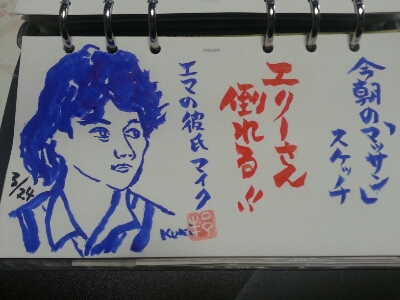 今朝の「マッサン」
スケッチ
エリーさん
倒れる!!
エマの彼氏 マイク
3/24